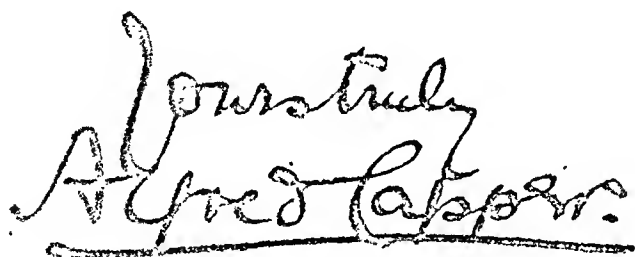 Yours truly
Alfred Capper.